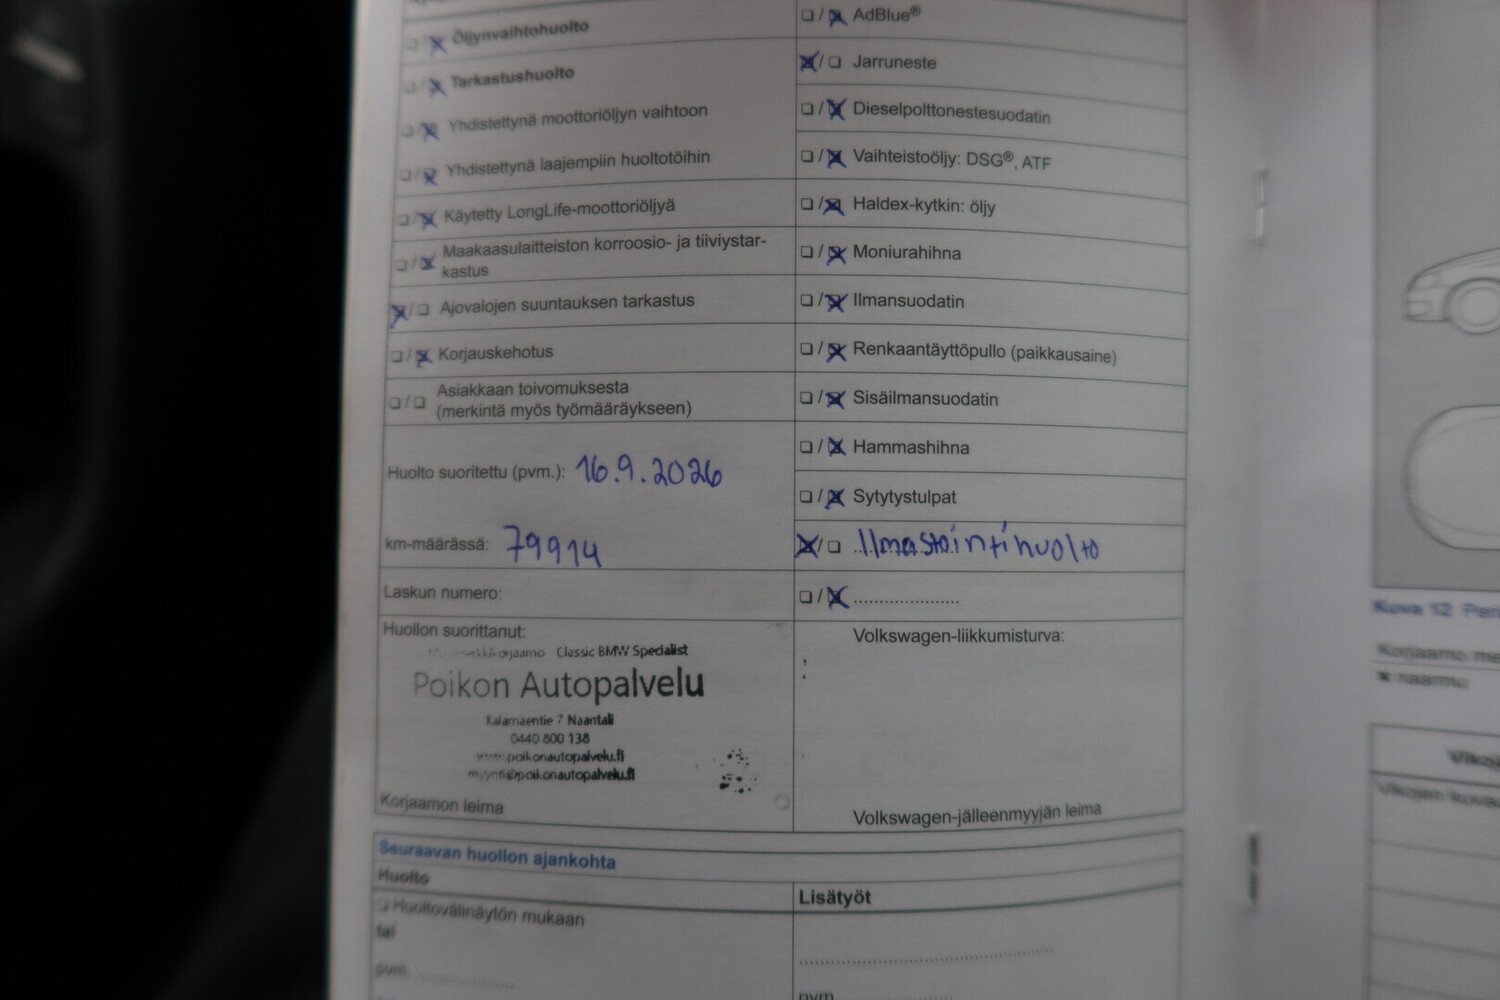 Öljynvaihtohuolto
Tarkastushuolto
Yhdistettynä moottoriöljyn vaihtoon
Yhdistettynä laajempiin huoltotöihin
Käytetty LongLife-moottoriöljyä
Maakaasulaitteiston korroosio- ja tiiviystar-
kastus
Ajovalojen suuntauksen tarkastus
Korjauskehotus
Asiakkaan toivomuksesta
(merkintä myös työmääräykseen)
Huolto suoritettu (pvm.): 16.9.2026
km-määrässä: 79914
Laskun numero:
Huollon suorittanut:
Classic BMW Specialist
Poikon Autopalvelu
Kalamäentie 7 Naantali
0440 800 138
www.poikonautopalvelu.fi
myynti@poikonautopalvelu.fi
Korjaamon leima
AdBlue®
Jarruneste
Dieselpolttonestesuodatin
Vaihteistoöljy: DSG®, ATF
Haldex-kytkin: öljy
Moniurahihna
Ilmansuodatin
Renkaantäyttöpullo (paikkausaine)
Sisäilmansuodatin
Hammashihna
Sytytystulpat
Ilmastointihuolto
Volkswagen-liikkumisturva:
Volkswagen-jälleenmyyjän leima
Seuraavan huollon ajankohta
Huolto
Huoltovälinäytön mukaan
tai
pvm.
Lisätyöt
pvm.
Kuva 12
Korjaamo
naarmu